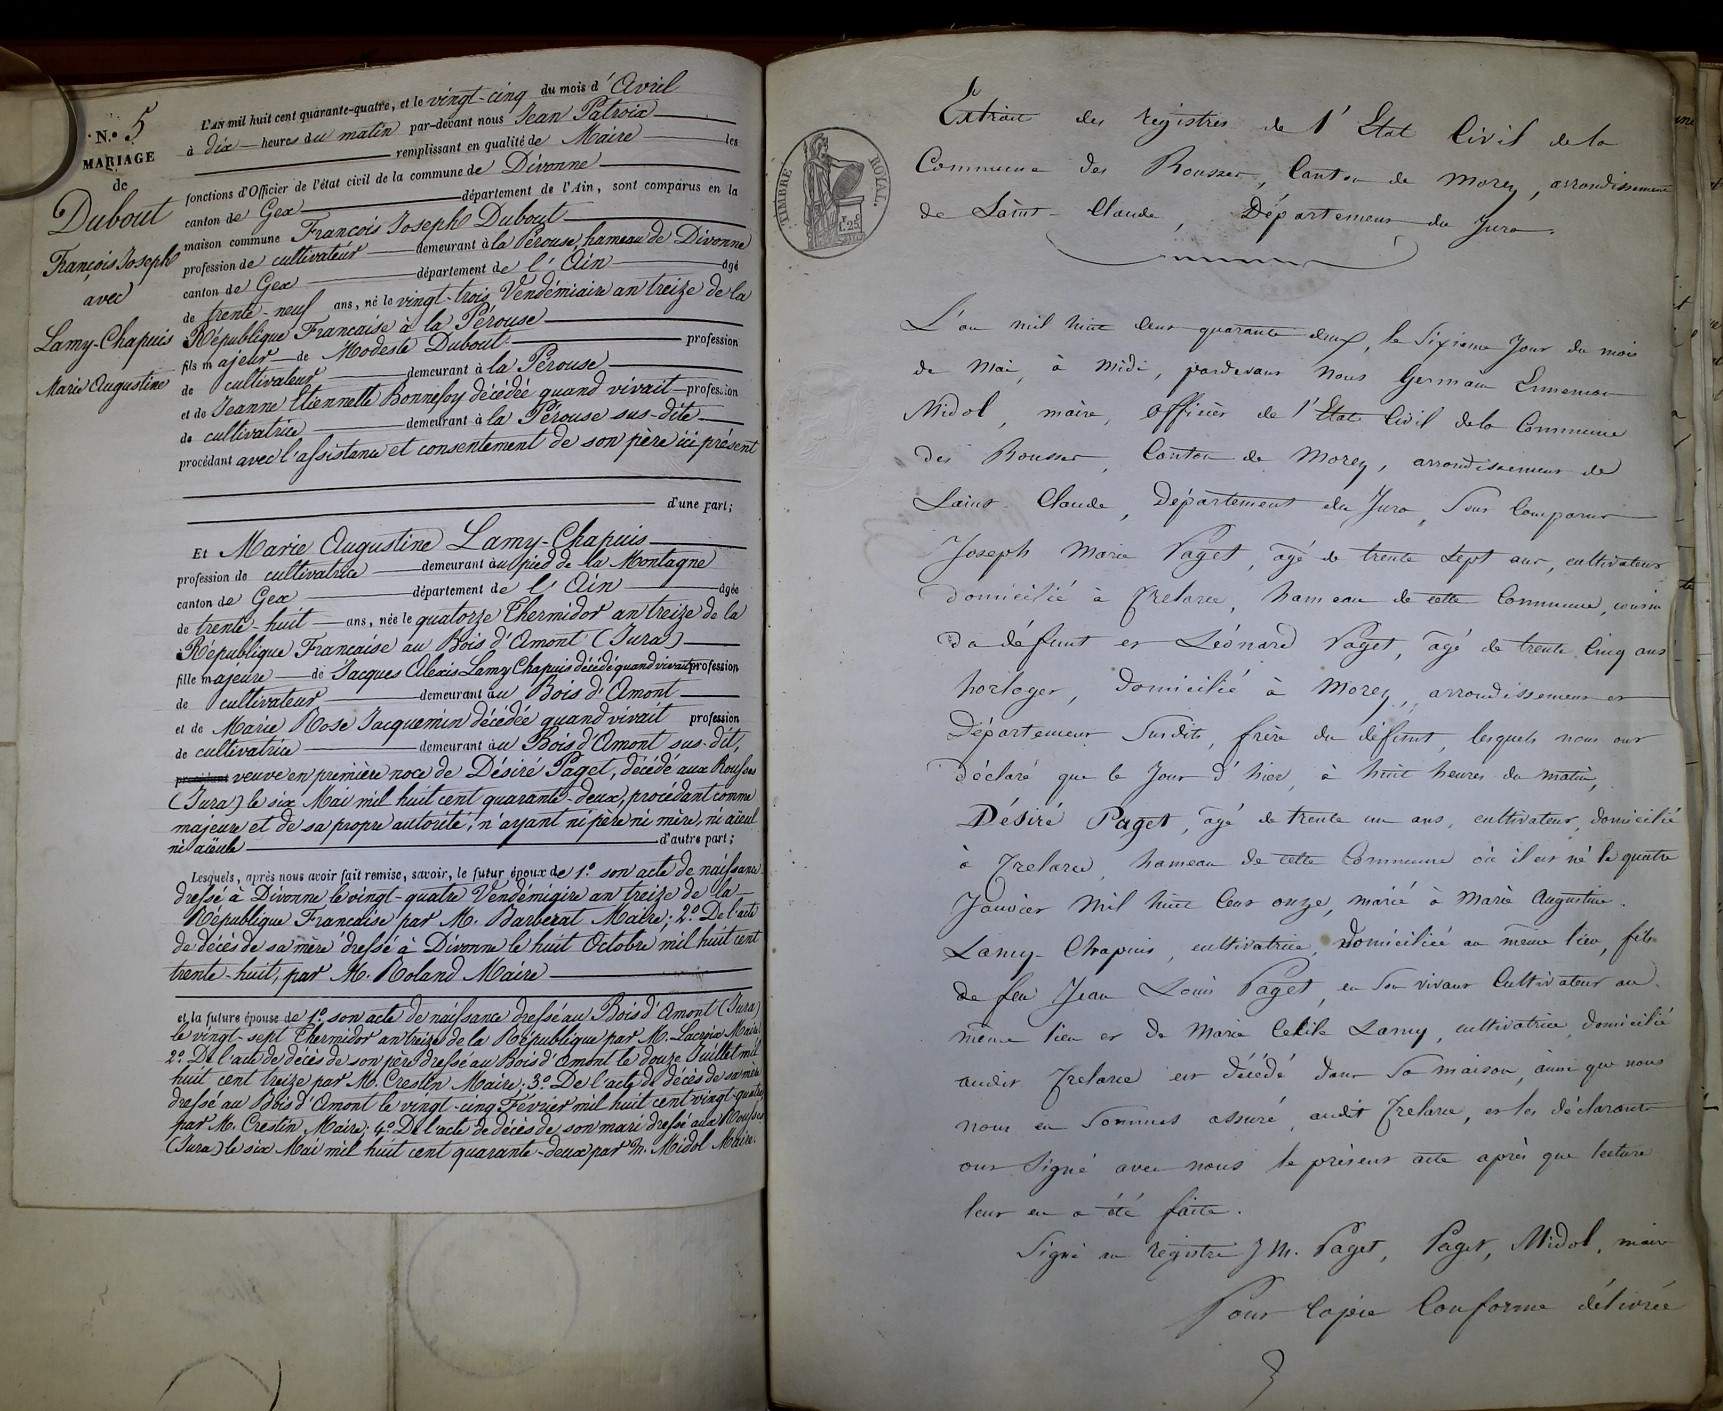 N.º 5
MARIAGE
de
Dubout
François Joseph
avec
Lamy-Chapuis
Marie Augustine
L'AN mil huit cent quarante-quatre, et le vingt-cinq du mois d'Avril
à dix heures du matin par-devant nous Jean Patroix
remplissant en qualité de Maire les
fonctions d'Officier de l'état civil de la commune de Divonne
canton de Gex département de l'Ain, sont comparus en la
maison commune François Joseph Dubout
profession de cultivateur demeurant à la Pérouse, hameau de Divonne
canton de Gex département de l'Ain âgé
de trente-neuf ans, né le vingt-trois Vendémiaire an treize de la
République Francaise à la Pérouse
fils majeur de Modeste Dubout profession
de cultivateur demeurant à la Pérouse
et de Jeanne Etiennette Bonnefoy décédée quand vivait profession
de cultivatrice demeurant à la Pérouse sus-dite
procédant avec l'assistance et consentement de son père ici présent
d'une part;
Et Marie Augustine Lamy-Chapuis
profession de cultivatrice demeurant au pied de la Montagne
canton de Gex département de l'Ain âgée
de trente-huit ans, née le quatorze Thermidor an treize de la
République Francaise au Bois d'Amont (Jura)
fille majeure de Jacques Alexis Lamy Chapuis décédé quand vivait profession
de cultivateur demeurant au Bois d'Amont
et de Marie Rose Jacquemin décédée quand vivait profession
de cultivatrice demeurant au Bois d'Amont sus-dit,
procédant veuve en première noce de Désiré Paget, décédé aux Rousses
(Jura) le six Mai mil huit cent quarante-deux, procédant comme
majeure et de sa propre autorité, n'ayant ni père ni mère, ni aïeul
ni aïeule d'autre part;
Lesquels, après nous avoir fait remise, savoir, le futur époux de 1.º son acte de naissance
dressé à Divonne le vingt-quatre Vendémiaire an treize de la
République Francaise par M. Barberat Maire; 2.º De l'acte
de décès de sa mère dressé à Divonne le huit Octobre mil huit cent
trente-huit, par M. Roland Maire
et la future épouse de 1.º son acte de naissance dressé au Bois d'Amont (Jura)
le vingt-sept Thermidor an treize de la République par M. Lacroix Maire
2.º De l'acte de décès de son père dressé au Bois d'Amont le douze Juillet mil
huit cent treize par M. Crestin Maire; 3.º De l'acte de décès de sa mère
dressé au Bois d'Amont le vingt-cinq Février mil huit cent vingt-quatre
par M. Crestin, Maire; 4.º De l'acte de décès de son mari dressé aux Rousses
(Jura) le six Mai mil huit cent quarante-deux par M. Midol Maire.
TIMBRE ROYAL.
Extrait des registres de l'Etat Civil de la
Commune des Rousses, Canton de Morez, arrondissement
de Saint-Claude, Département du Jura.
L'an mil huit cent quarante deux, le Sixieme Jour du mois
de Mai, à midi, pardevant Nous Germain
Midol, maire, officier de l'Etat Civil de la Commune
des Rousses, Canton de Morez, arrondissement de
Saint-Claude, Département du Jura, Sont Comparus
Joseph Marie Paget, âgé de trente sept ans, cultivateur
domicilié à Frelarce, hameau de cette Commune, cousin
du défunt et Léonard Paget, âgé de trente Cinq ans
horloger, domicilié à Morez, arrondissement et
Département Susdits, frère du défunt, lesquels nous ont
déclaré que le Jour d'hier, à huit heures du matin,
Désiré Paget, âgé de trente un ans, cultivateur, domicilié
à Frelarce, hameau de cette Commune où il est né le quatre
Janvier Mil huit Cent onze, marié à Marie Augustine
Lamy-Chapuis, cultivatrice, Domiciliée au même lieu, fils
de feu Jean Louis Paget, en Son vivant Cultivateur au
même lieu et de Marie Lamy, cultivatrice, domiciliée
audit Frelarce est décédé dans Sa maison, ainsi que nous
nous en Sommes assuré, audit Frelarce, et les déclarants
ont Signé avec nous le présent acte après que lecture
leur en a été faite.
Signé au registre J M. Paget, Paget, Midol, maire
Pour Copie Conforme délivrée